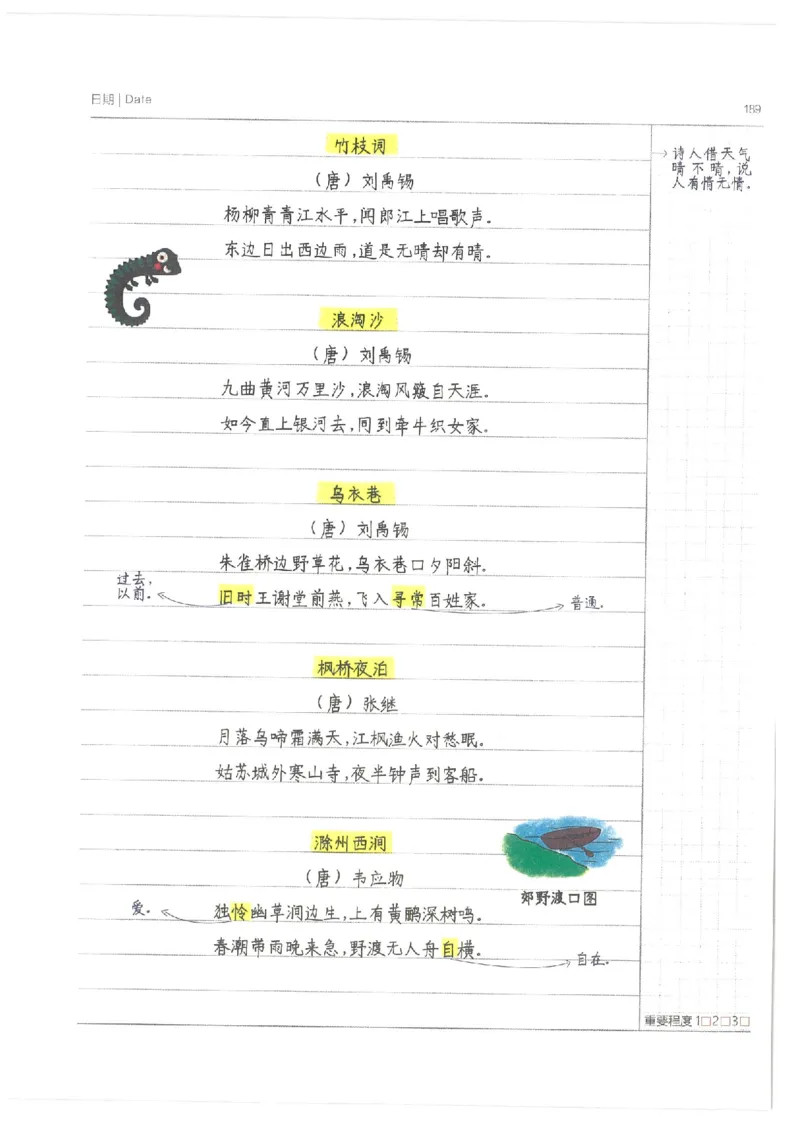 日期 | Date
189
竹枝词
(唐) 刘禹锡
杨柳青青江水平,闻郎江上唱歌声。
东边日出西边雨,道是无晴却有晴。
→诗人借天气
晴不晴,说
人有情无情。
浪淘沙
(唐) 刘禹锡
九曲黄河万里沙,浪淘风簸自天涯。
如今直上银河去,同到牵牛织女家。
乌衣巷
(唐) 刘禹锡
朱雀桥边野草花,乌衣巷口夕阳斜。
过去,
以前。
旧时王谢堂前燕,飞入寻常百姓家。
普通。
枫桥夜泊
(唐) 张继
月落乌啼霜满天,江枫渔火对愁眠。
姑苏城外寒山寺,夜半钟声到客船。
滁州西涧
(唐) 韦应物
郊野渡口图
爱。
独怜幽草涧边生,上有黄鹂深树鸣。
春潮带雨晚来急,野渡无人舟自横。
自在。
重要程度 1□2□3□